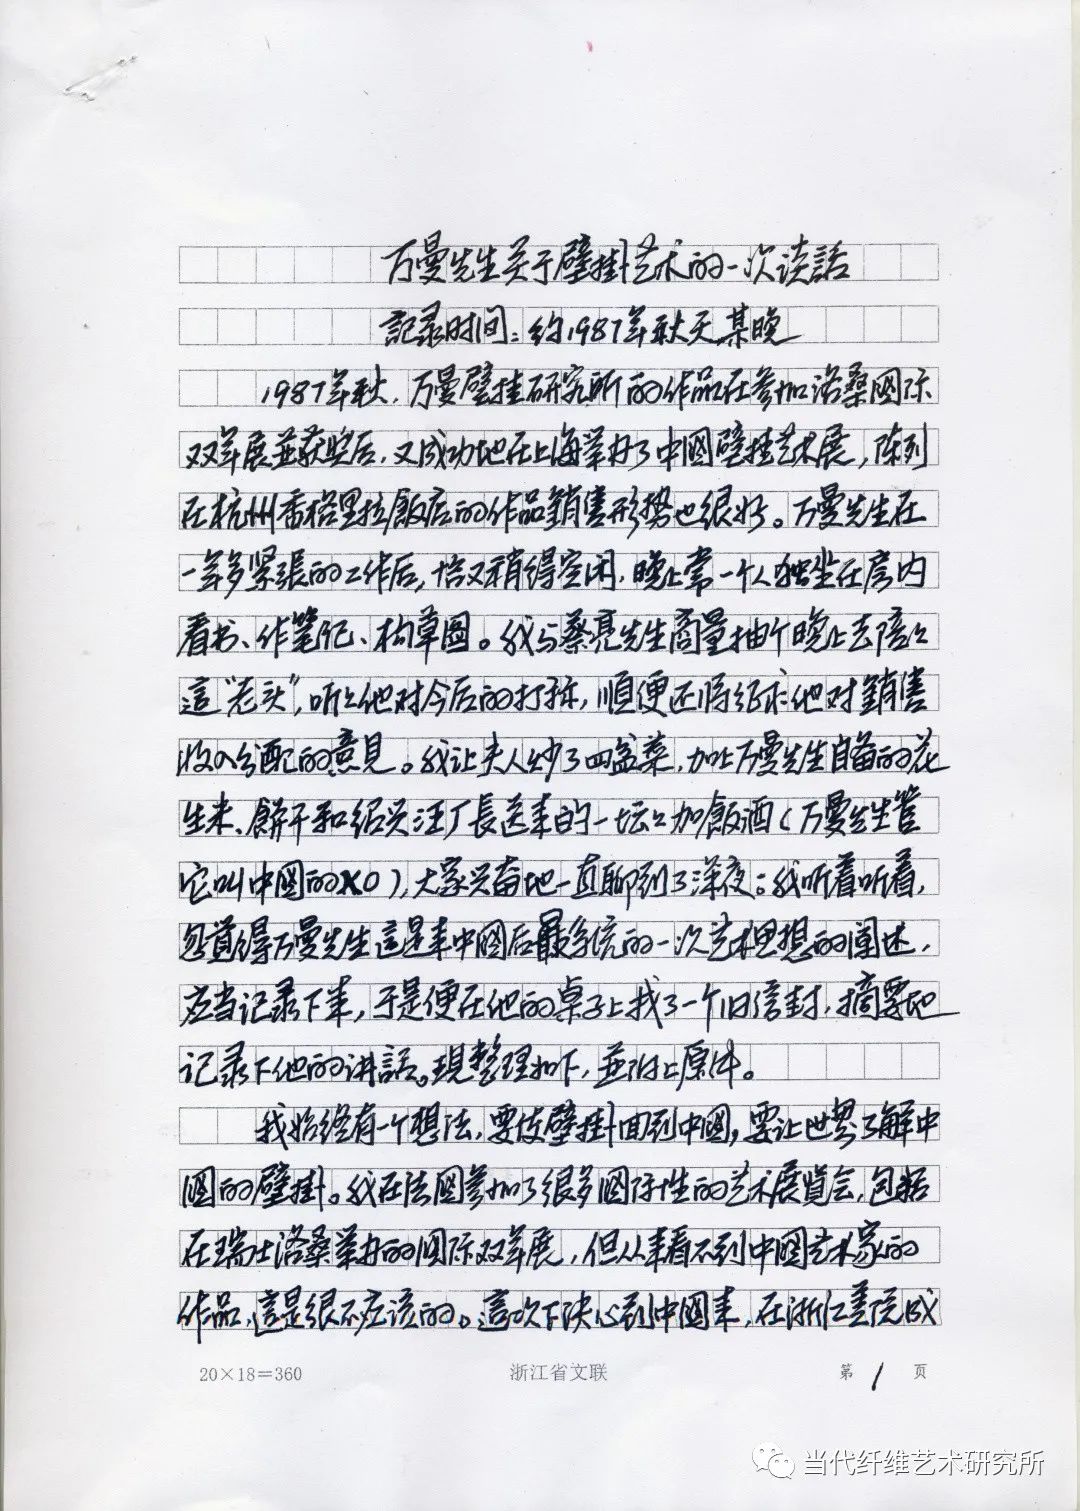 万曼先生关于壁挂艺术的一次谈話
記录时间：约1987年秋天某晚
1987年秋，万曼壁挂研究所的作品在参加洛桑國际
双年展並获奖后，又成功地在上海举办了中國壁挂艺术展，陈列
在杭州香格里拉飯店的作品銷售形势也很好。万曼先生在
一年多紧張的工作后，恰又稍得空闲，晚上常一个人独坐在房内
看书、作笔记、构草图。我与蔡亮先生商量抽个晚上去陪々
這“老头”，听々他对今后的打称，順便还將征求他对銷售
收入分配的意見。我让夫人炒了四盆菜，加上万曼先生自备的花
生米、餅干和绍兴汪厂長送来的一坛々加飯酒（万曼先生管
它叫中國的XO），大家兴奋地一直聊到了深夜。我听着听着，
忽觉得万曼先生這是来中國后最系统的一次艺术思想的阐述，
应当记录下来，于是便在他的桌子上找了一个旧信封，摘要地
记录下他的讲話。現整理如下，並附上原件。
我始终有一个想法，要使壁挂回到中國，要让世界了解中
國的壁挂。我在法國参加了很多國际性的艺术展览会，包括
在瑞士洛桑举办的国际双年展，但从来看不到中國艺术家的
作品，這是很不应该的。這次下决心到中國来，在浙江美院成
20×18＝360 浙江省文联 第1页
当代纤维艺术研究所